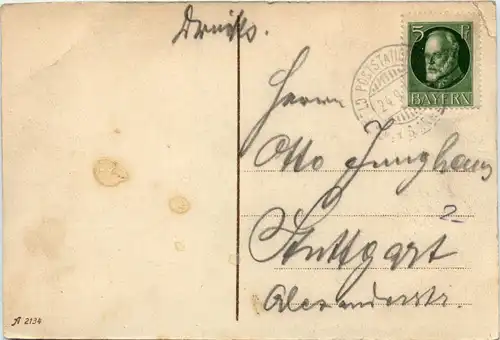 Drucks.
5 Pf
BAYERN
POSTSTA
Herrn
Otto Junghans
2
Stuttgart
Alexanderstr.
A 2134